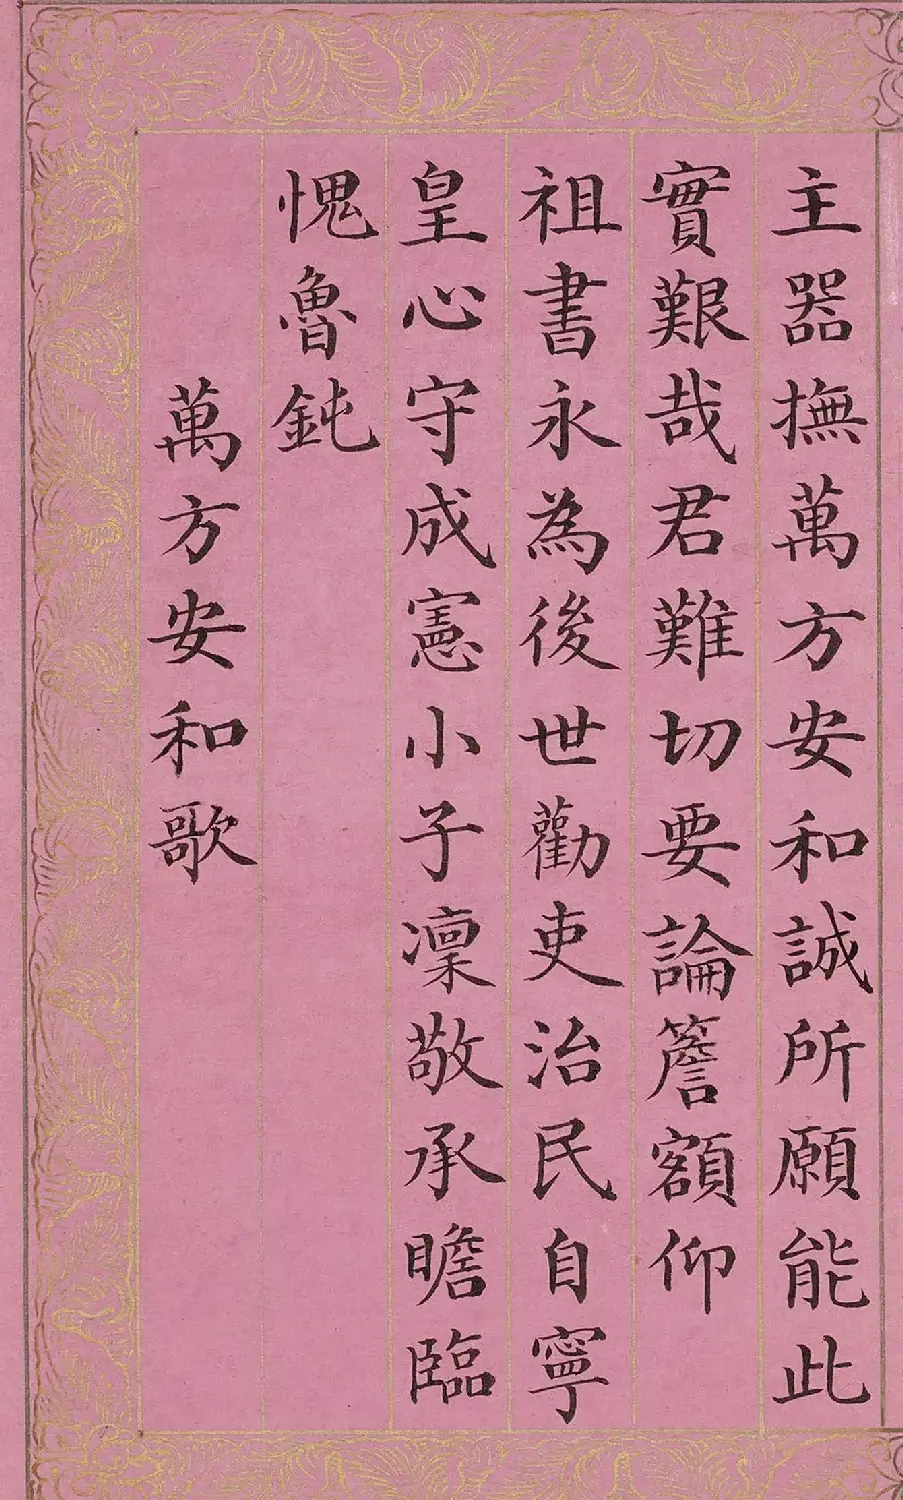 主器撫萬方安和誠所願能此
實艱哉君難切要論簷額仰
祖書永為後世勸吏治民自寧
皇心守成憲小子凜敬承瞻臨
愧魯鈍
萬方安和歌